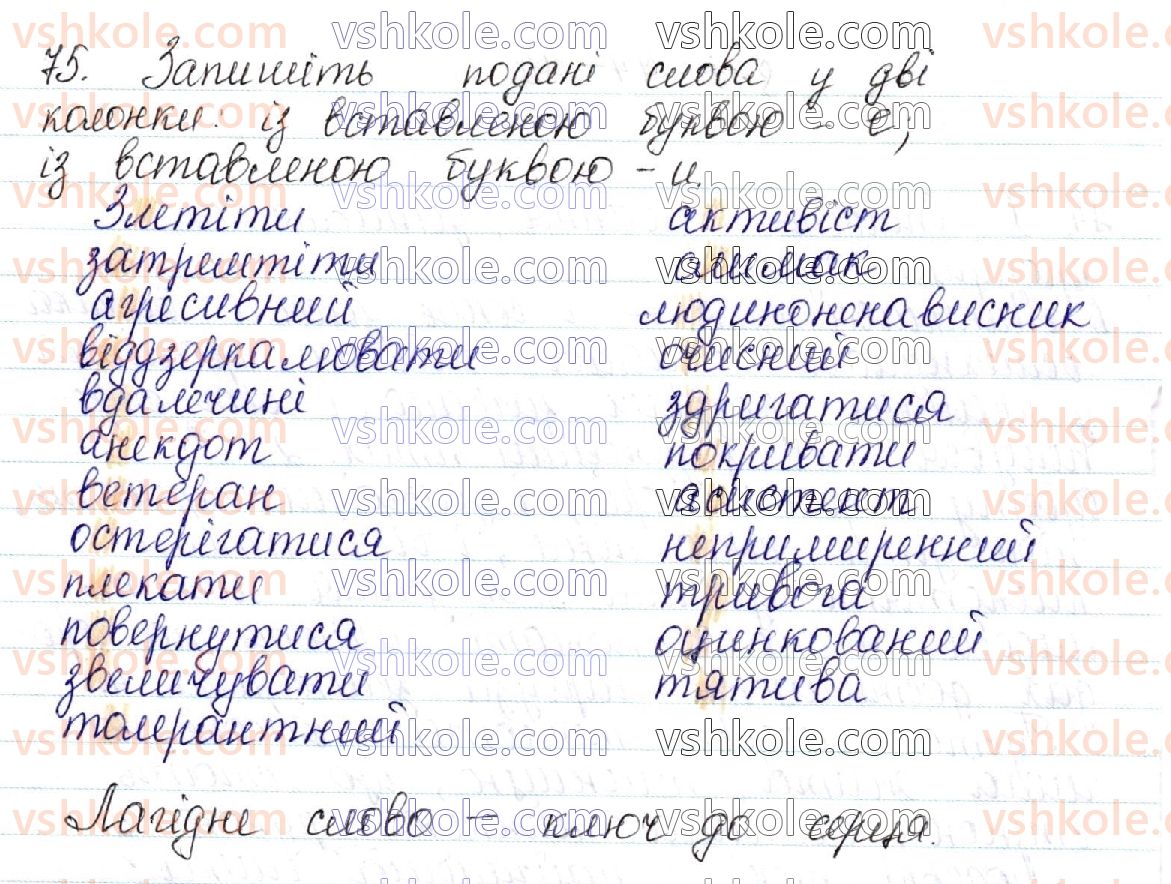 75. Запишіть подані слова у дві
колонки: із вставленою буквою - е;
із вставленою буквою - и.
Злетіти активіст
затремтіти слимак
агресивний людиноненависник
віддзеркалювати очисний
вдалечині здригатися
анекдот покривати
ветеран агитект
остерігатися непримиренний
плекати тривога
повернутися оцинкований
звеличувати тятива
толерантний
Лагідне слово - ключ до серця.
vshkole.com